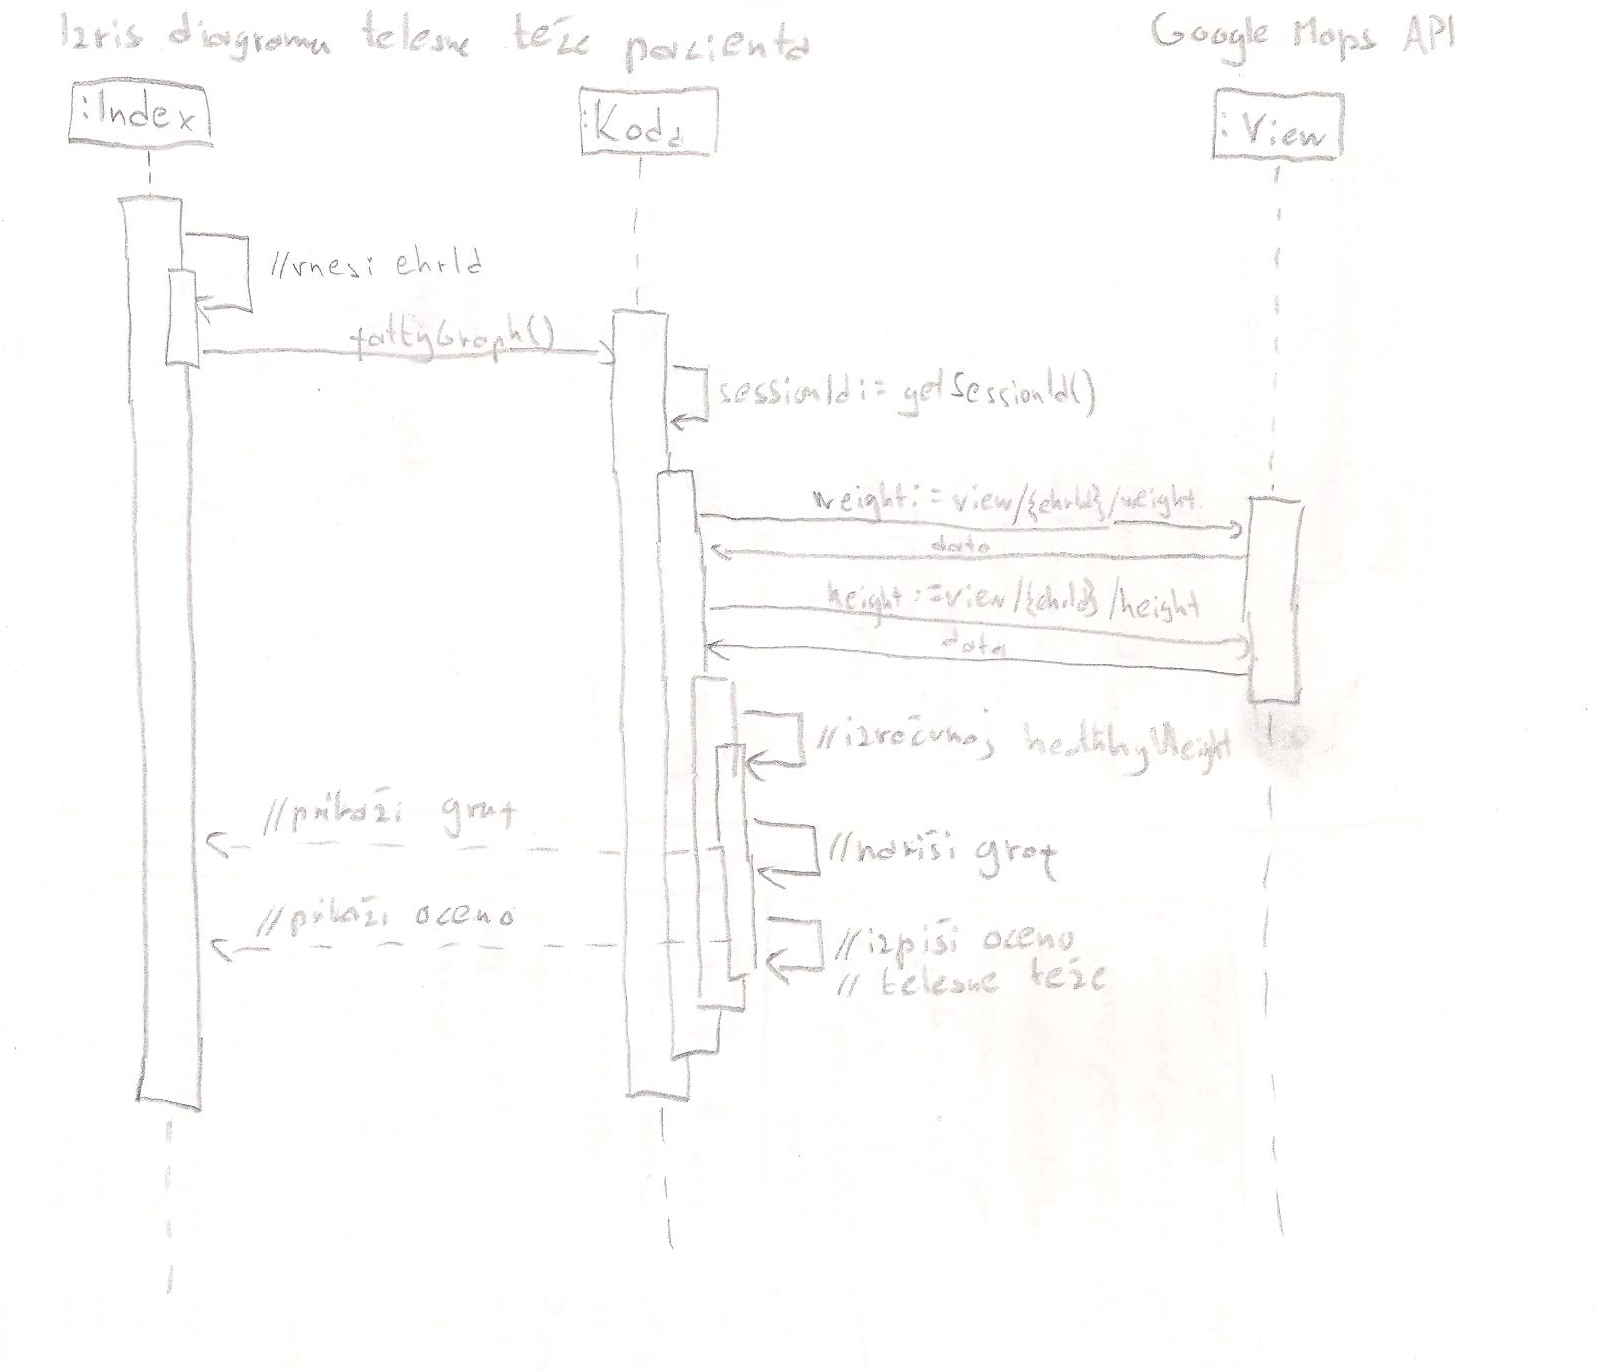 Izris diagrama telesne teže pacienta
Google Maps API
:Index
:Koda
:View
//vnesi ehrId
fattyGraph()
sessionId:= getSessionId()
weight:=view/{ehrId}/weight
data
height:=view/{ehrId}/height
data
//izračunaj healthyWeight
//prikaži graf
//nariši graf
//prikaži oceno
//izpiši oceno
// telesne teže